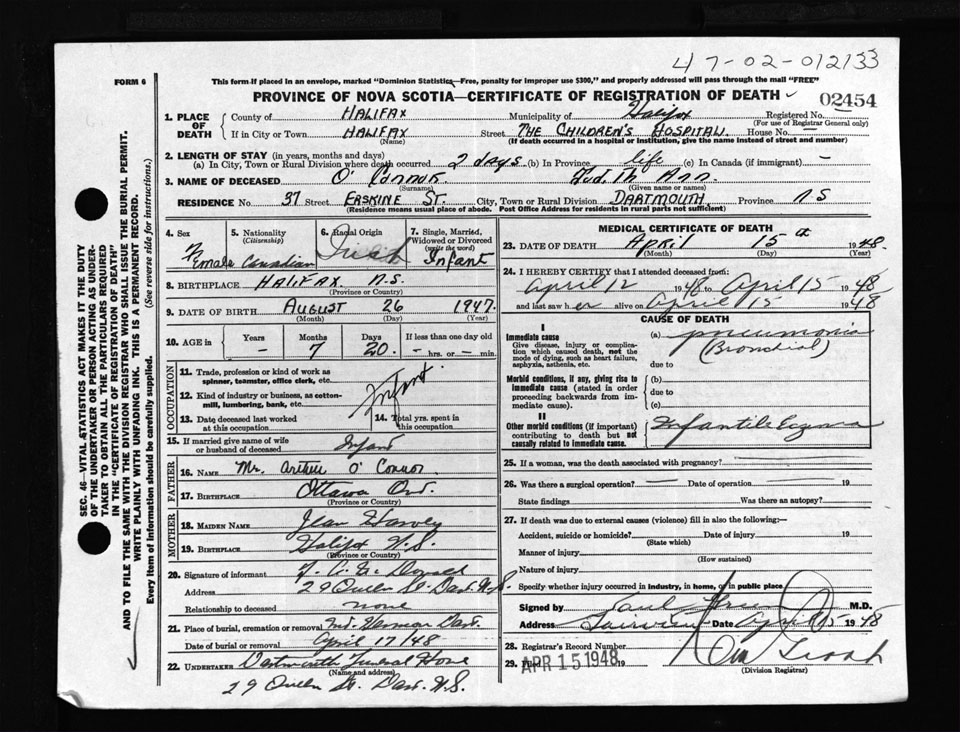 47-02-012133
FORM 6
This form if placed in an envelope, marked "Dominion Statistics—Free, penalty for improper use $300," and properly addressed will pass through the mail "FREE"
PROVINCE OF NOVA SCOTIA—CERTIFICATE OF REGISTRATION OF DEATH
02454
1. PLACE OF DEATH
County of HALIFAX Municipality of Halifax Registered No.
(For use of Registrar General only)
If in City or Town HALIFAX Street THE CHILDREN'S HOSPITAL House No. —
(Name) (If death occurred in a hospital or institution, give the name instead of street and number)
2. LENGTH OF STAY (in years, months and days)
(a) In City, Town or Rural Division where death occurred 2 days (b) In Province life (c) In Canada (if immigrant) —
3. NAME OF DECEASED O'Connor Judith Ann
(Surname) (Given name or names)
RESIDENCE No. 37 Street ERSKINE ST. City, Town or Rural Division DARTMOUTH Province NS
(Residence means usual place of abode. Post Office Address for residents in rural parts not sufficient)
4. Sex Female
5. Nationality (Citizenship) Canadian
6. Racial Origin Irish
7. Single, Married, Widowed or Divorced (write the word) Infant
8. BIRTHPLACE HALIFAX N.S.
(Province or Country)
9. DATE OF BIRTH AUGUST 26 1947
(Month) (Day) (Year)
10. AGE in Years Months Days If less than one day old
— 7 20 — hrs. or — min.
OCCUPATION
11. Trade, profession or kind of work as spinner, teamster, office clerk, etc.
12. Kind of industry or business, as cotton-mill, lumboring, bank, etc.
Infant
13. Date deceased last worked at this occupation
14. Total yrs. spent in this occupation
15. If married give name of wife or husband of deceased Infant
FATHER
16. NAME Mr. Arthur O'Connor
17. BIRTHPLACE Ottawa Ont.
(Province or Country)
MOTHER
18. MAIDEN NAME Jean Harvey
19. BIRTHPLACE Halifax N.S.
(Province or Country)
20. Signature of informant
Address 29 Queen St. Dart. N.S.
Relationship to deceased none
21. Place of burial, cremation or removal Mt. Vernon Dart.
Date of burial or removal April 17/48
22. UNDERTAKER Dartmouth Funeral Home
(Name and address)
29 Queen St. Dart. N.S.
MEDICAL CERTIFICATE OF DEATH
23. DATE OF DEATH April 15th 1948
(Month) (Day) (Year)
24. I HEREBY CERTIFY that I attended deceased from:
April 12 1948 to April 15 1948
and last saw her alive on April 15 1948
CAUSE OF DEATH
I
Immediate cause
Give disease, injury or complication which caused death, not the mode of dying, such as heart failure, asphyxia, asthenia, etc.
(a) pneumonia
(Bronchial)
due to
Morbid conditions, if any, giving rise to immediate cause (stated in order proceeding backwards from immediate cause).
(b)
due to
(c)
II
Other morbid conditions (if important) contributing to death but not causally related to immediate cause.
Infantile Eczema
25. If a woman, was the death associated with pregnancy?
26. Was there a surgical operation? — Date of operation 19
State findings Was there an autopsy?
27. If death was due to external causes (violence) fill in also the following:—
Accident, suicide or homicide? Date of injury 19
(State which)
Manner of injury
(How sustained)
Nature of injury
Specify whether injury occurred in industry, in home, or in public place
Signed by Paul M.D.
Address Fairview Date April 15 1948
28. Registrar's Record Number
29. Filed APR 15 1948 19
(Division Registrar)
SEC. 46—VITAL STATISTICS ACT MAKES IT THE DUTY
OF THE UNDERTAKER OR PERSON ACTING AS UNDERTAKER
TO OBTAIN ALL THE PARTICULARS REQUIRED
IN THE "CERTIFICATE OF REGISTRATION OF DEATH"
AND TO FILE THE SAME WITH THE DIVISION REGISTRAR WHO SHALL ISSUE THE BURIAL PERMIT.
WRITE PLAINLY WITH UNFADING INK. THIS IS A PERMANENT RECORD.
Every item of Information should be carefully supplied. (See reverse side for instructions.)